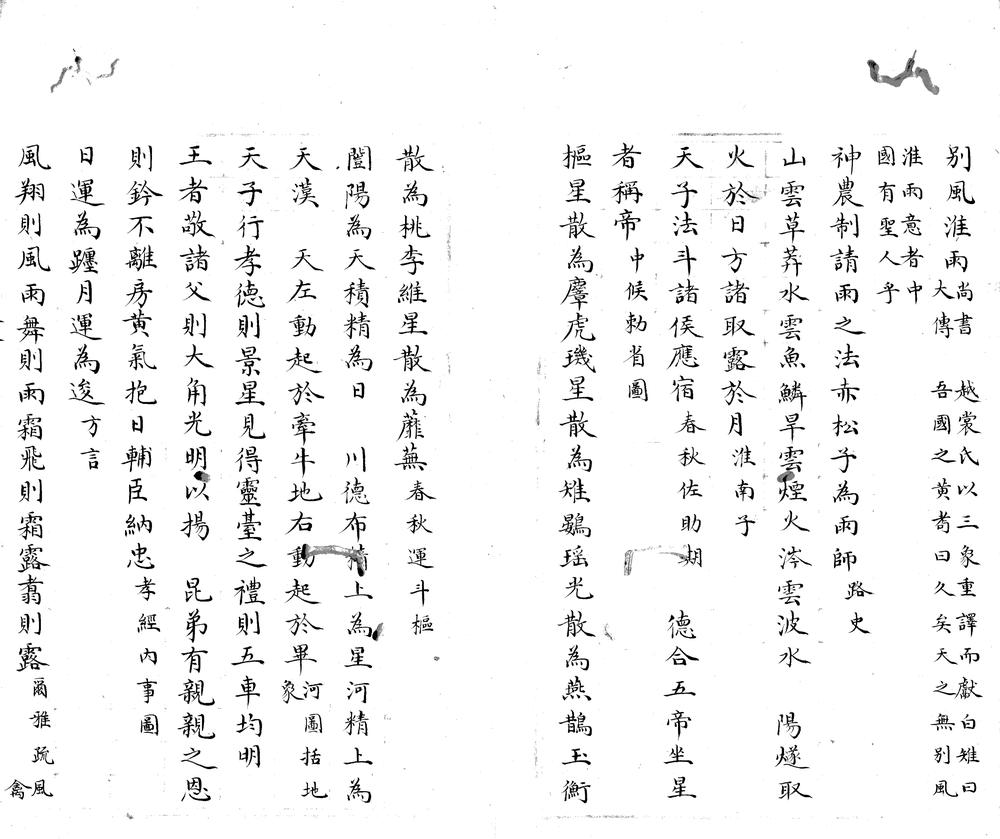 别風淮雨尚書大傳 越裳氏以三象重譯而獻白雉曰吾國之黄耇曰久矣天之無别風
淮雨意者中國有聖人乎
神農制請雨之法赤松子為雨師路史
山雲草莽水雲魚鱗旱雲煙火涔雲波水 陽燧取
火於日方諸取露於月淮南子
天子法斗諸侯應宿春秋佐助期 德合五帝坐星
者稱帝中候勑省圖
樞星散為麞虎璣星散為雉鷃瑶光散為燕鵲玉衡
散為桃李維星散為蘼蕪春秋運斗樞
闓陽為天積精為日 川德布精上為星河精上為
天漢 天左動起於牽牛地右動起於畢河圖括地象
天子行孝德則景星見得靈臺之禮則五車均明
王者敬諸父則大角光明以揚 昆弟有親親之恩
則鈐不離房黄氣抱日輔臣納忠孝經内事圖
日運為躔月運為逡方言
風翔則風雨舞則雨霜飛則霜露翥則露爾雅疏風禽